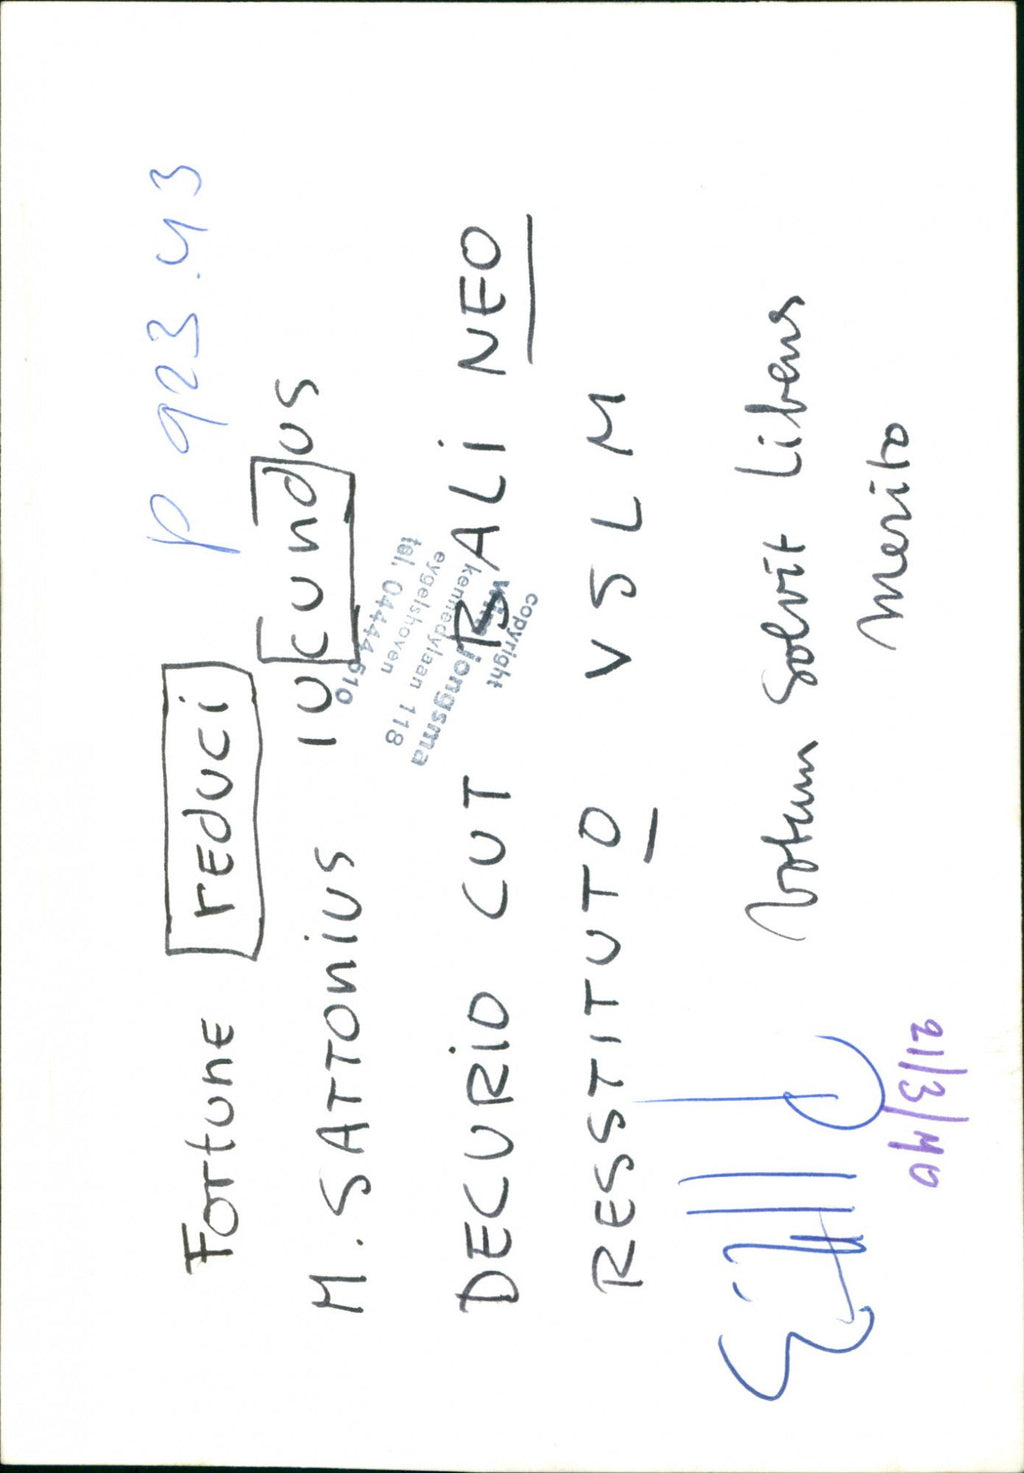 P 923.43
Fortune reduci
M. SATTONIUS IUcundus
DECURIO CUT BALINEO
RESSTITUTO V S L M
Votum Solvit Libens
Merito
copyright
wim jongsma
kennedylaan 118
eygelshoven
tel. 04444 610